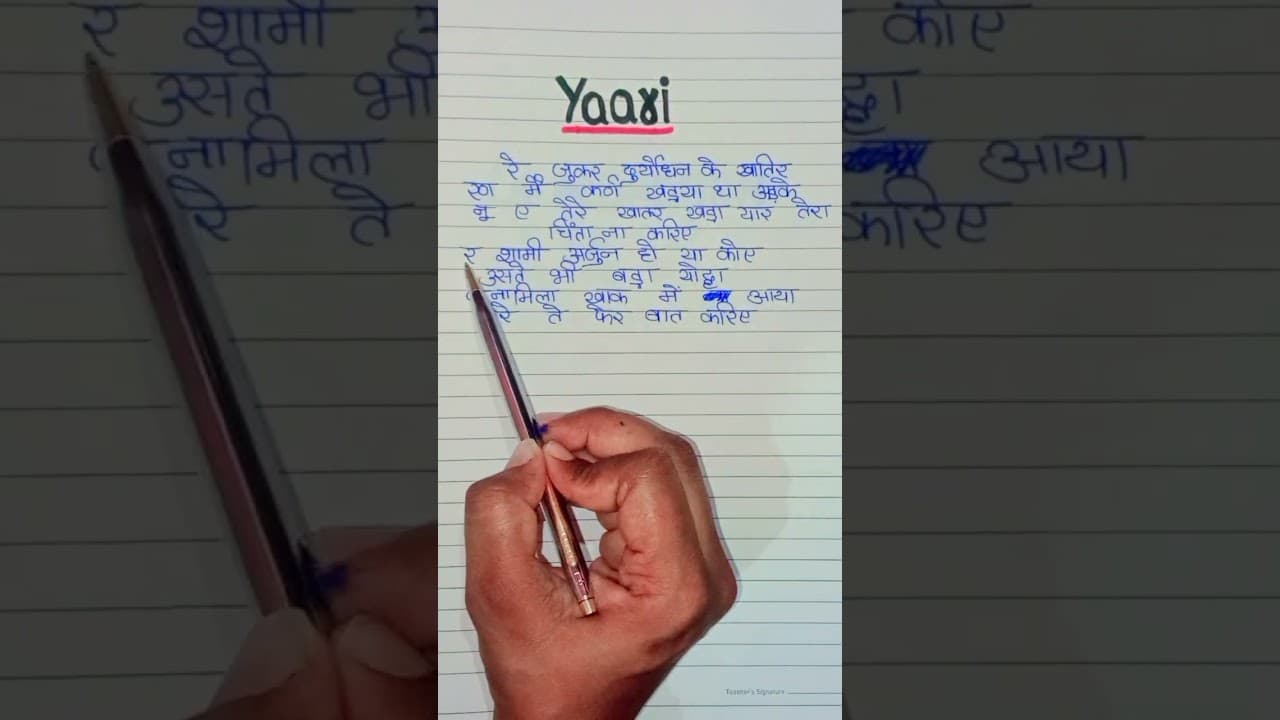 Yaari
रे जुकर दुर्योधन के खातिर
रण में कर्ण खड्या था अडके
नू ए तेरे खातर खड़ा यार तेरा
चिंता ना करिए
र शामी अर्जुन हो या कोए
उसते भी बड़ा योद्धा
नामिला खाक में आया
रे ते फेर बात करिए
Teacher's Signature